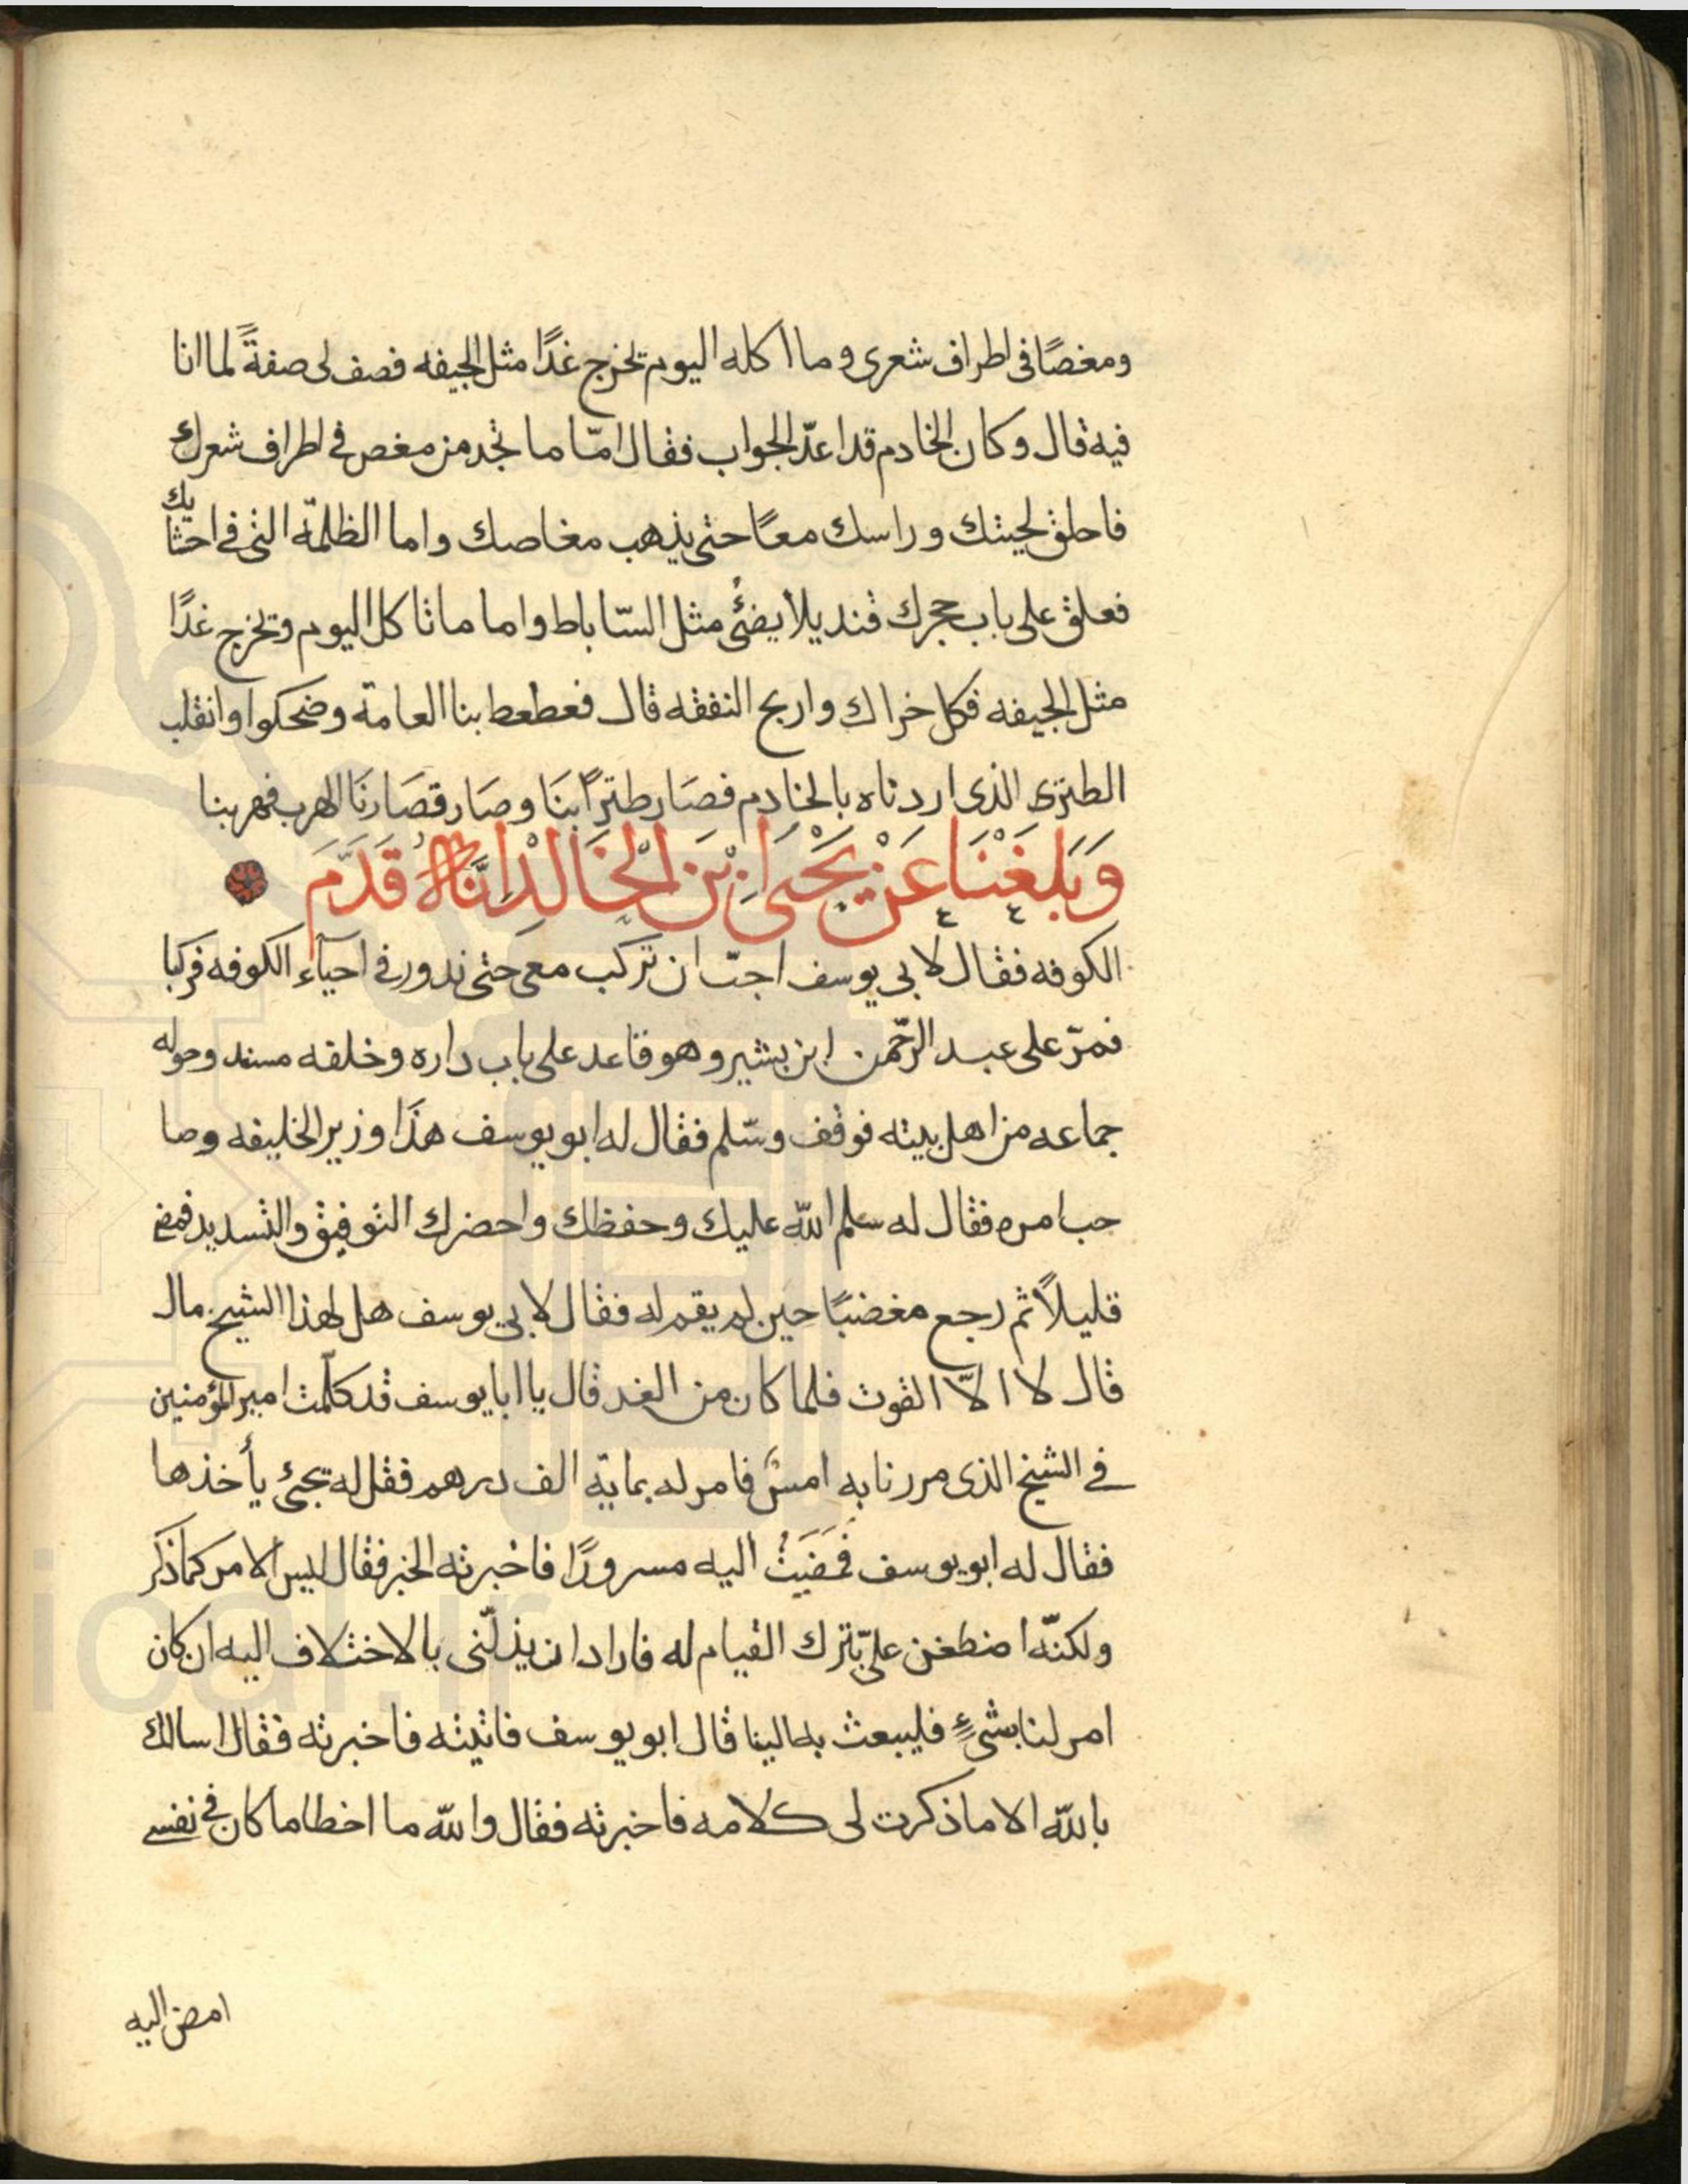 ومغصًا في اطراف شعري وما اكله اليوم تخرج غدًا مثل الجيفه فصف لي صفةً لما انا
فيه قال وكان الخادم قد اعدّ الجواب فقال امّا ما تجد من مغص في اطراف شعرك
فاحلق لحيتك وراسك معًا حتى يذهب مغاصك واما الظلمة التي في احشايك
فعلق على باب حجرك قنديلا يضئ مثل السّاباط واما ما تاكل اليوم وتخرج غدًا
مثل الجيفه فكل خراك واربح النفقه قال فعطعط بنا العامة وضحكوا وانقلب
الطنزى الذى اردناه بالخادم فصَار طنزًا بنَا وصَار قصَارنَا الهرب فهربنا
وَبَلَغَنَا عَنْ يَحْيَى ابْنَ الْخَالِدِ انَّهُ قَدَّمَ
الكوفه فقال لابي يوسف احبّ ان تركب معى حتى ندور في احيآء الكوفه فركبا
فمرّ على عبد الرّحمن ابن بشير وهو قاعد على باب داره وخلفه مسند وحوله
جماعه من اهل بيته فوقف وسّلم فقال له ابو يوسف هذَا وزير الخليفه وصا
حب امره فقال له سلم الله عليك وحفظك واحضرك التوفيق والتسديد فمضى
قليلاً ثم رجع مغضبًا حين لم يقم له فقال لابي يوسف هل لهذا الشيخ مال
قال لا الّا القوت فلما كان من الغد قال يا ابا يوسف قد كلّمت امير المؤمنين
في الشيخ الذى مررنا به امس فامر له بماية الف درهم فقل له تجئ يأخذها
فقال له ابو يوسف فمَضَيتُ اليه مسرورًا فاخبرته الخبر فقال ليس الامر كما ذكر
ولكنّه اضطغن علىّ بترك القيام له فاراد ان يذلّنى بالاختلاف اليه ان كان
امر لنا بشىءٍ فليبعث به الينا قال ابو يوسف فاتيته فاخبرته فقال اسالك
بالله الا ما ذكرت لى كلامه فاخبرته فقال والله ما اخطا ما كان في نفسي
امض اليه